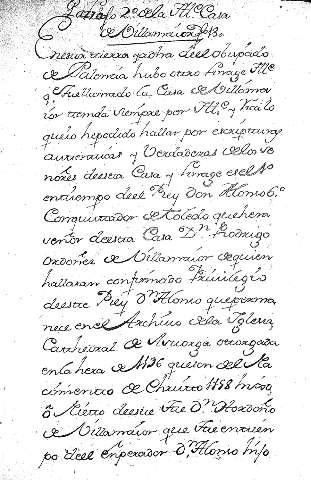 Párrafo 2º de la Ill.e Casa
de Villamaior
En esta tierra y adha del obispado
de Palencia hubo otro linage Ill.e
q.e fue llamado la Casa de Villama
ior tenida siempre por Ill.e y
que io he podido hallar por escripturas
autenticas y Verdaderas de los se
ñores de esta Casa y linage es el
en tiempo de el Rey don Alonso 6.º
Conquistador de toledo que hera
señor de esta Casa D.n Rodrigo
ordoñez de Villamaior de quien
hallaran confirmado Privilegio
de este Rey D.n Alonso que perma
nece en el Archivo de la Iglesia
Cathedral de Astorga otorgada
en la hera de 1126 que son del Na
cimiento de Christo 1188
Nieto de este fue D.n Hordoño
de Villamaior que fue en tiem
po de el enperador D.n Alonso hijo